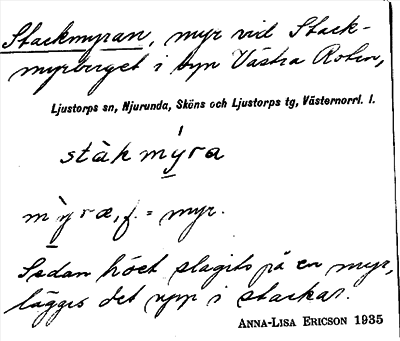 Stackmyran, myr vid Stack-
myrberget i byn Västra Roten,
Ljustorps sn, Njurunda, Sköns och Ljustorps tg, Västernorrl. l.
stàkmy̲ra
mỳ̲ræ, f. = myr.
Sedan höet slagits på en myr,
lägges det upp i stackar.
ANNA-LISA ERICSON 1935